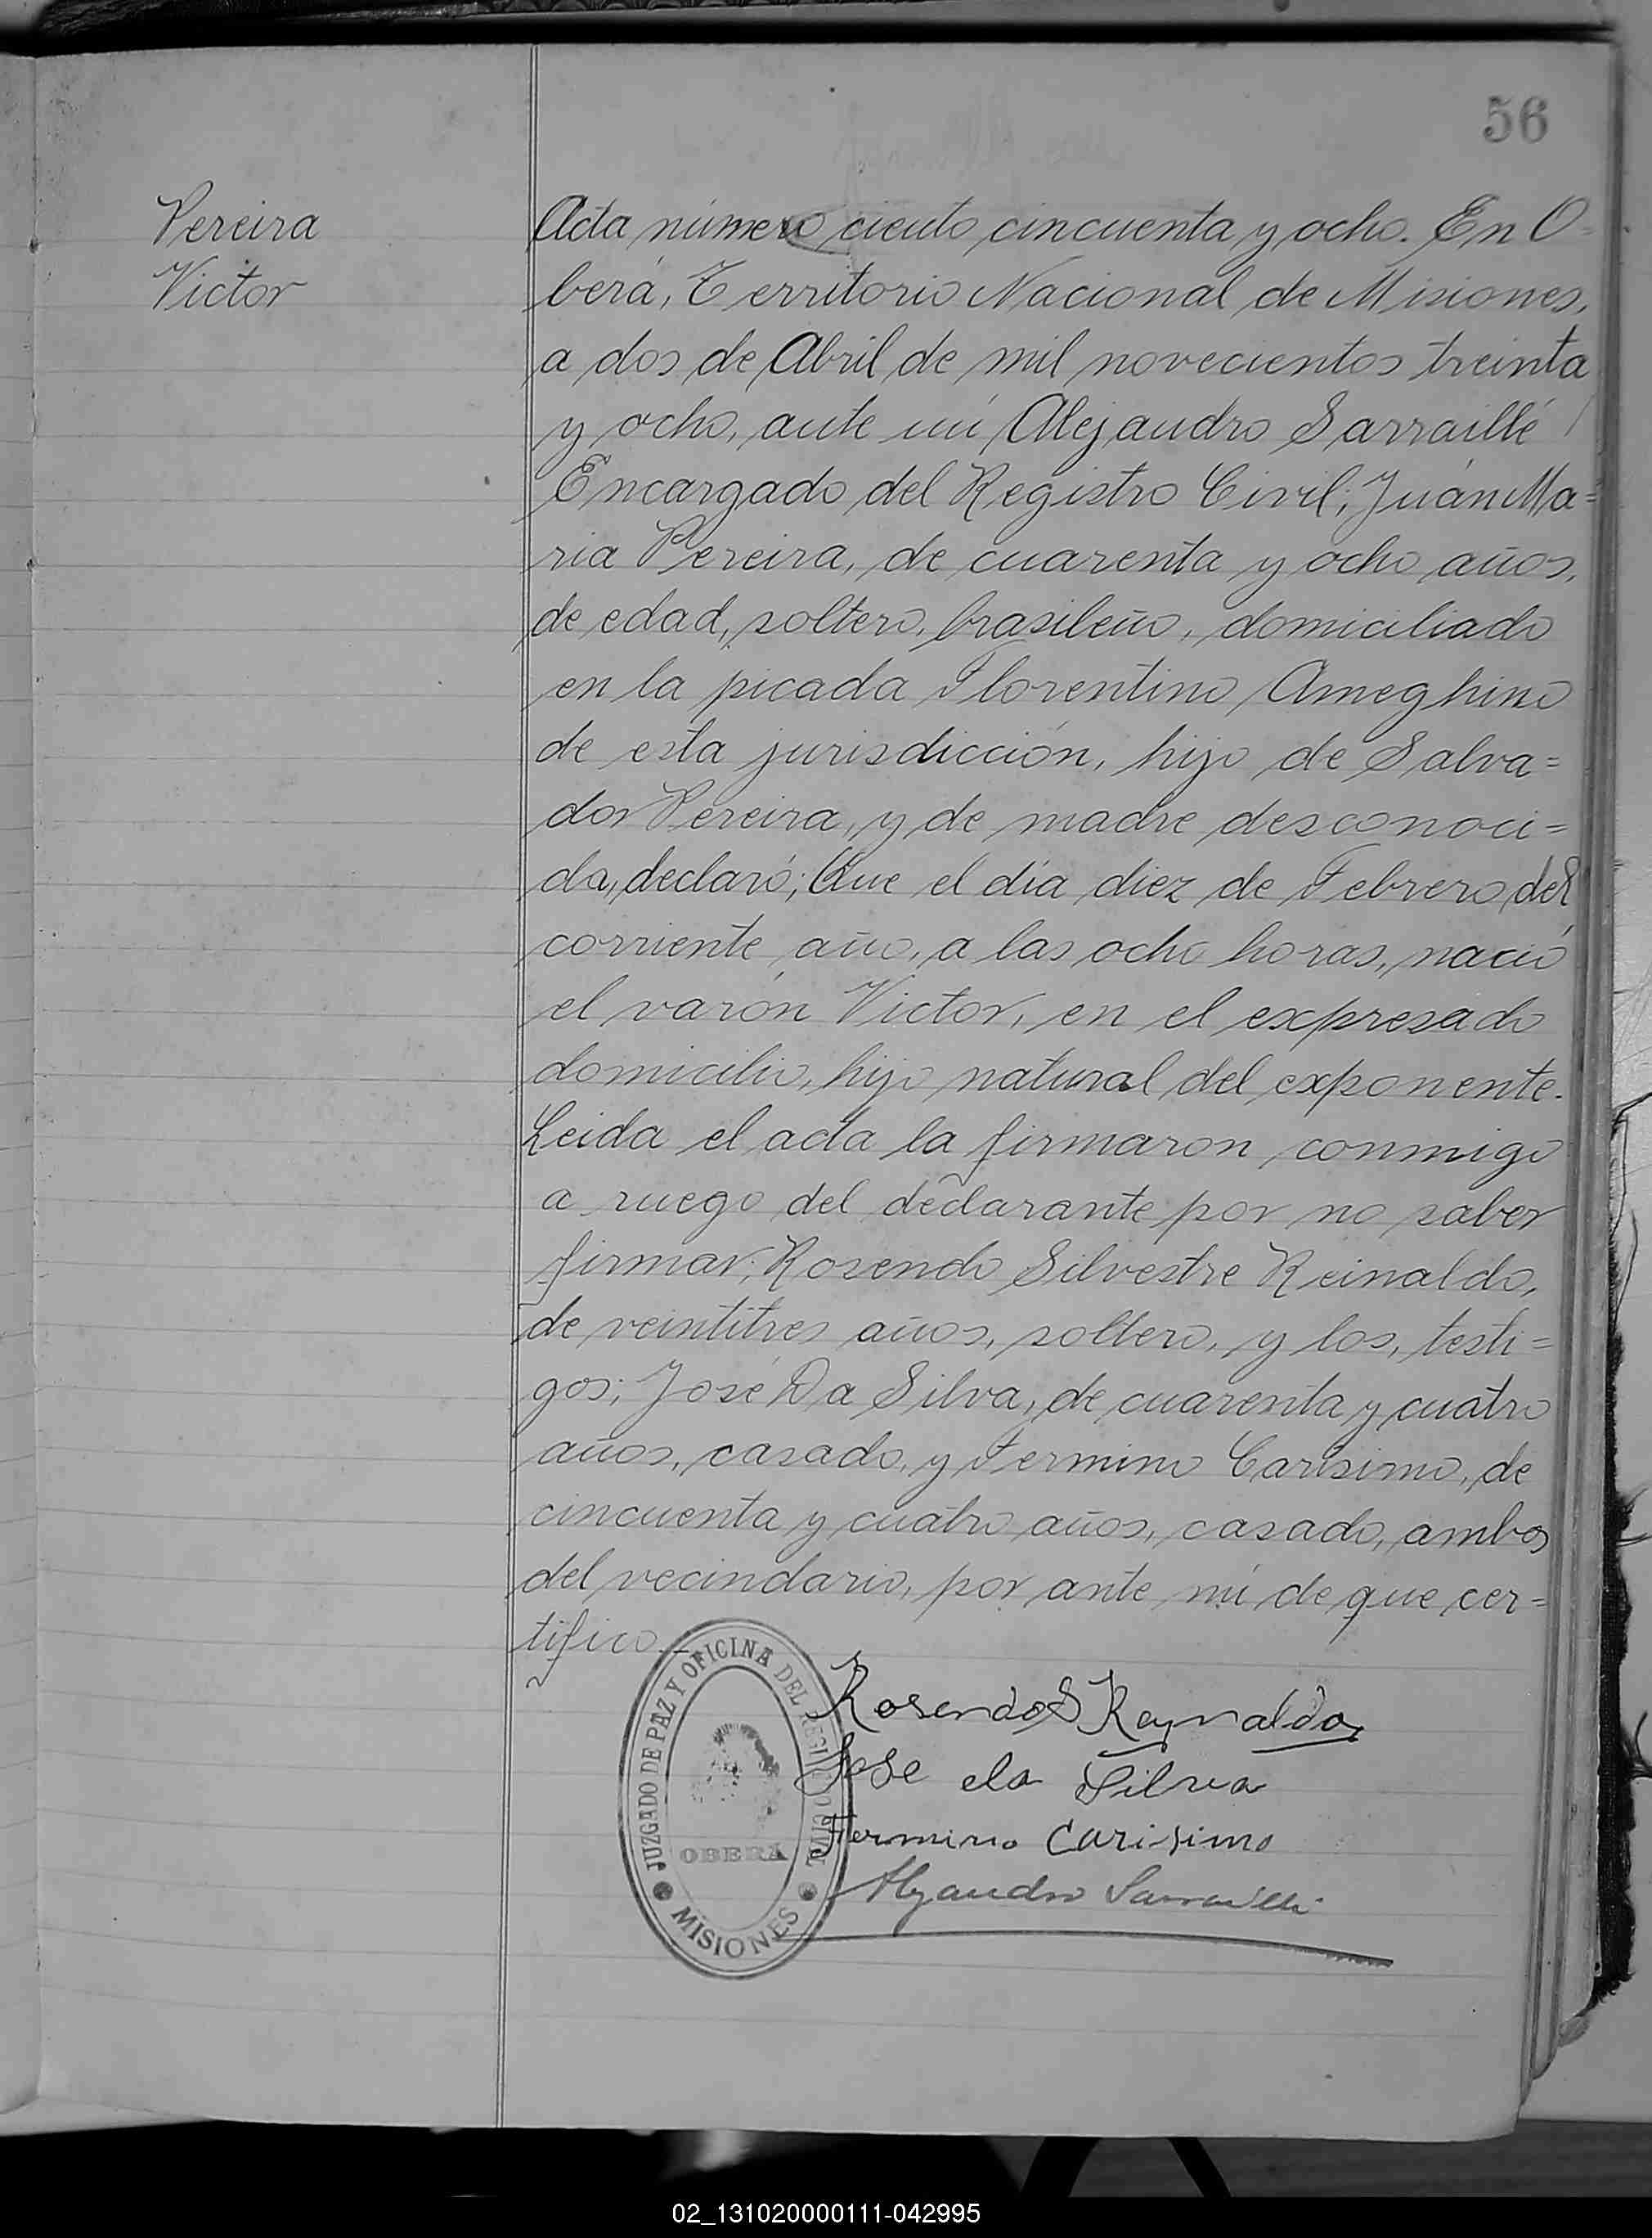 56
Pereira
Victor
Acta número ciento cincuenta y ocho. En O-
berá, Territorio Nacional de Misiones,
a dos de Abril de mil novecientos treinta
y ocho, ante mí Alejandro Sarraillé
Encargado del Registro Civil; Juán Ma=
ria Pereira, de cuarenta y ocho años,
de edad, soltero, brasileño, domiciliado
en la picada Florentino Ameghino
de esta jurisdicción, hijo de Salva=
dor Pereira, y de madre desconoci=
da, declaró; Que el día diez de Febrero del
corriente año, a las ocho horas, nació
el varón Victor, en el expresado
domicilio, hijo natural del exponente.
Leida el acta la firmaron conmigo
a ruego del declarante por no saber
firmar; Rosendo Silvestre Reinaldo,
de veintitres años, soltero, y los, testi=
gos; José Da Silva, de cuarenta y cuatro
años, casado, y Fermino Carísimo, de
cincuenta y cuatro años, casado, ambos
del vecindario, por ante mí de que cer=
tifico.-
Rosendo S Reynaldo
Jose da Silva
Fermino Carisimo
Alejandro Sarraillé
JUZGADO DE PAZ Y OFICINA DEL REGISTRO CIVIL
OBERA
MISIONES
02_131020000111-042995